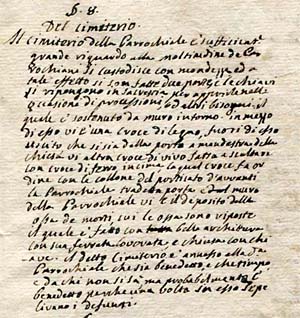 §. 8.
Del Cimeterio.
Il Cimiterio della Parrochiale è sufficiente
grande riguardo alla moltitudine de Pa-
rochiani si custodisce con mondezza ed a
tale effetto si sono fatte due porte e le chiavi
si ripongono in Sacrestia per aprirle nelle
occasioni di processioni ed altri bisogni, il
quale è sostenuto da muro intorno. in mezzo
di esso vi è una croce di legno, fuori di esso
subito che si sia dalla porta a mandestra della
chiesa vi altra croce di vivo fatta a scultura
con croce di ferro in cima la qual croce fa or-
dine con le collone del porticato d'avvanti
la Parrochiale tra detta porta e muro
della Parrochiale vi è il deposito delle
ossa de morti, cui le ossa sono riposte
il quale è fatto con bella architettura
con sua ferrata lavorata, e chiusa con chi-
ave. il detto Cimeterio è annesso alla
Parrochiale che sia benedetto, e che tempo
e da chi non si sà, ma probabilmente è
benedetto perche una volta in esso sepe-
livano i defunti.